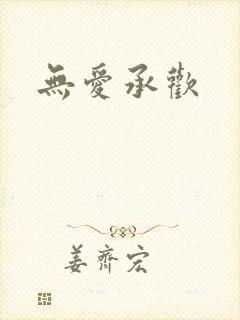 無愛承歡
姜齊宏